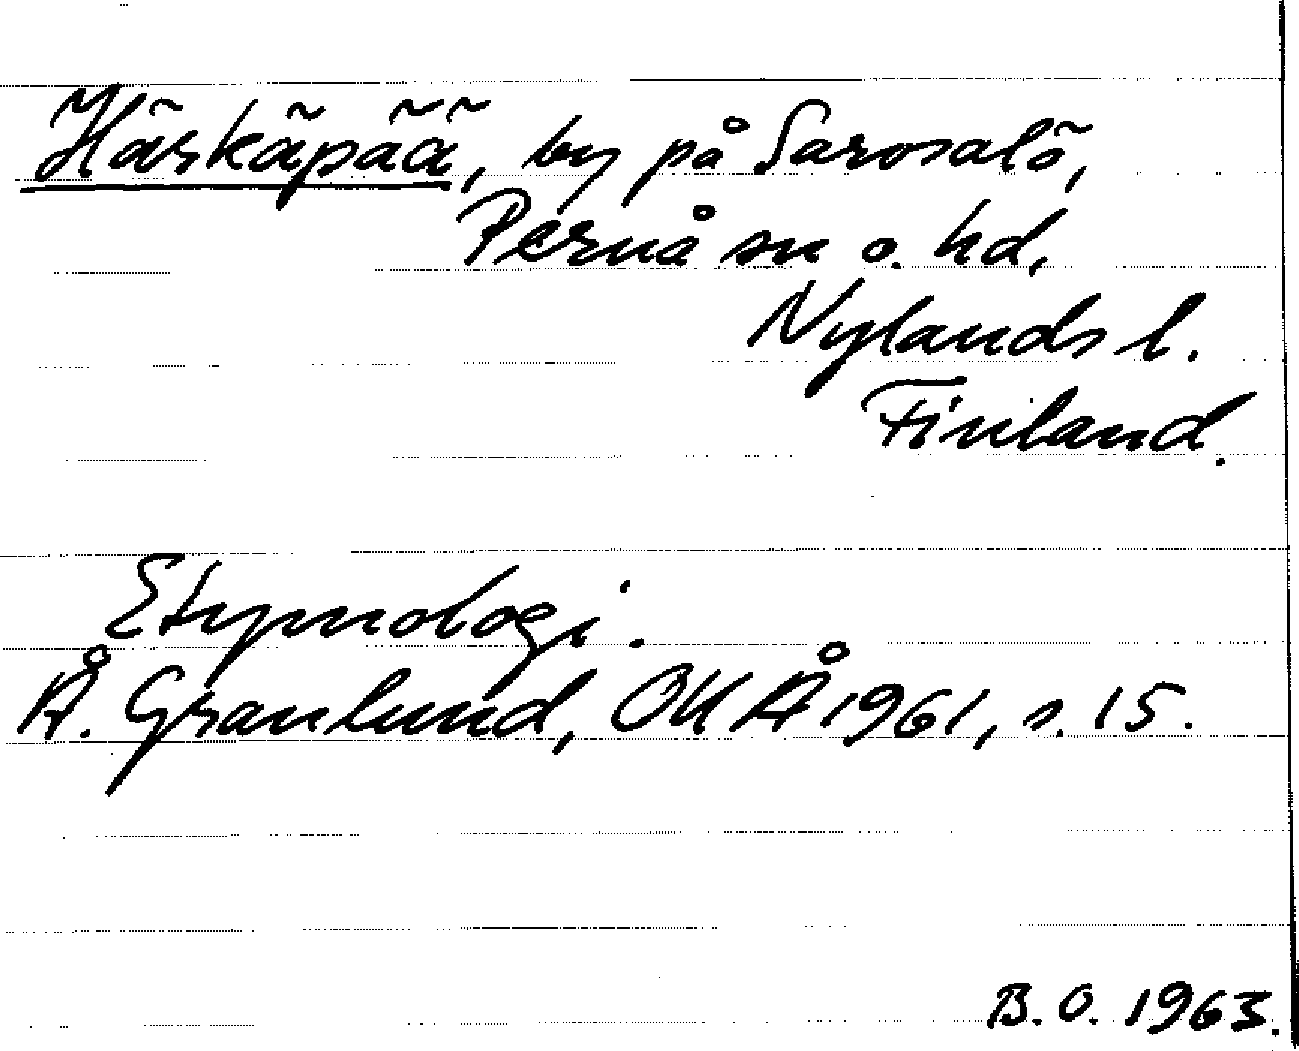 Härkäpää, by på Sarvsalö,
Pernå sn o. hd,
Nylands l.
Finland.
Etymologi.
Å. Granlund, OUÅ 1961, s. 15.
B. O. 1963.